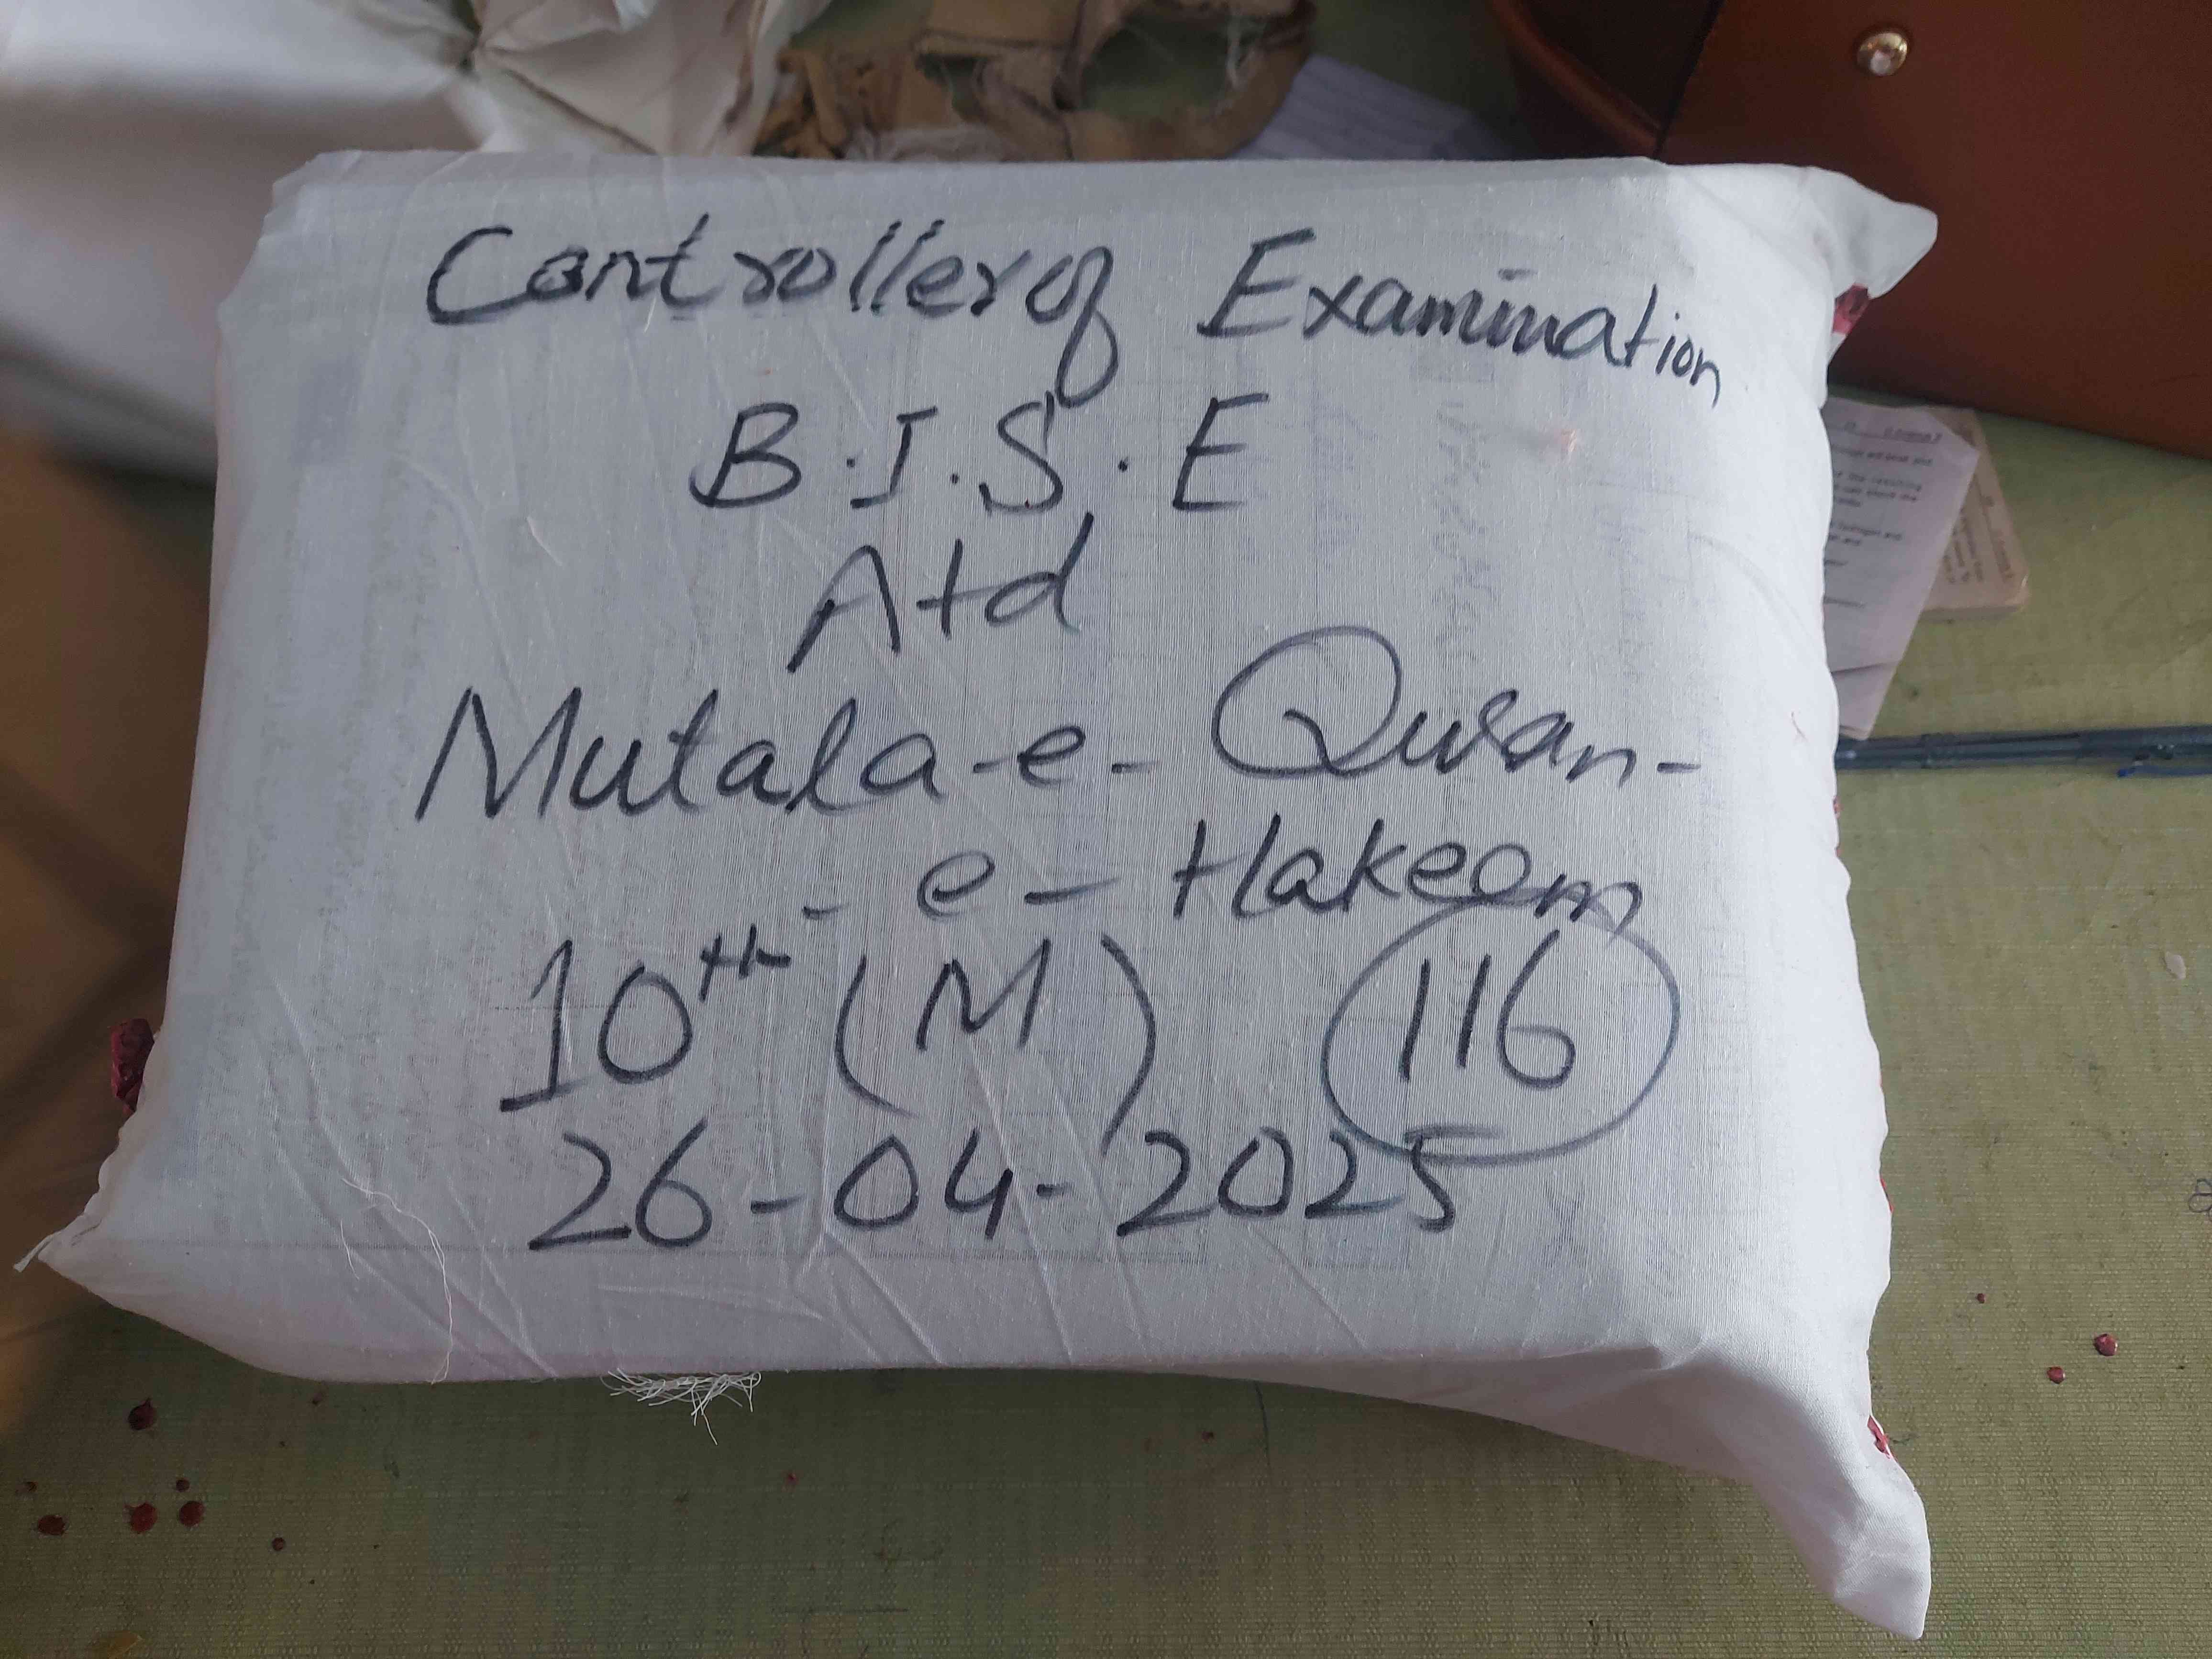 Controller of Examination
B.I.S.E
Atd
Mutala-e-Quran-
-e-Hakeem
10th (M) 116
26-04-2025